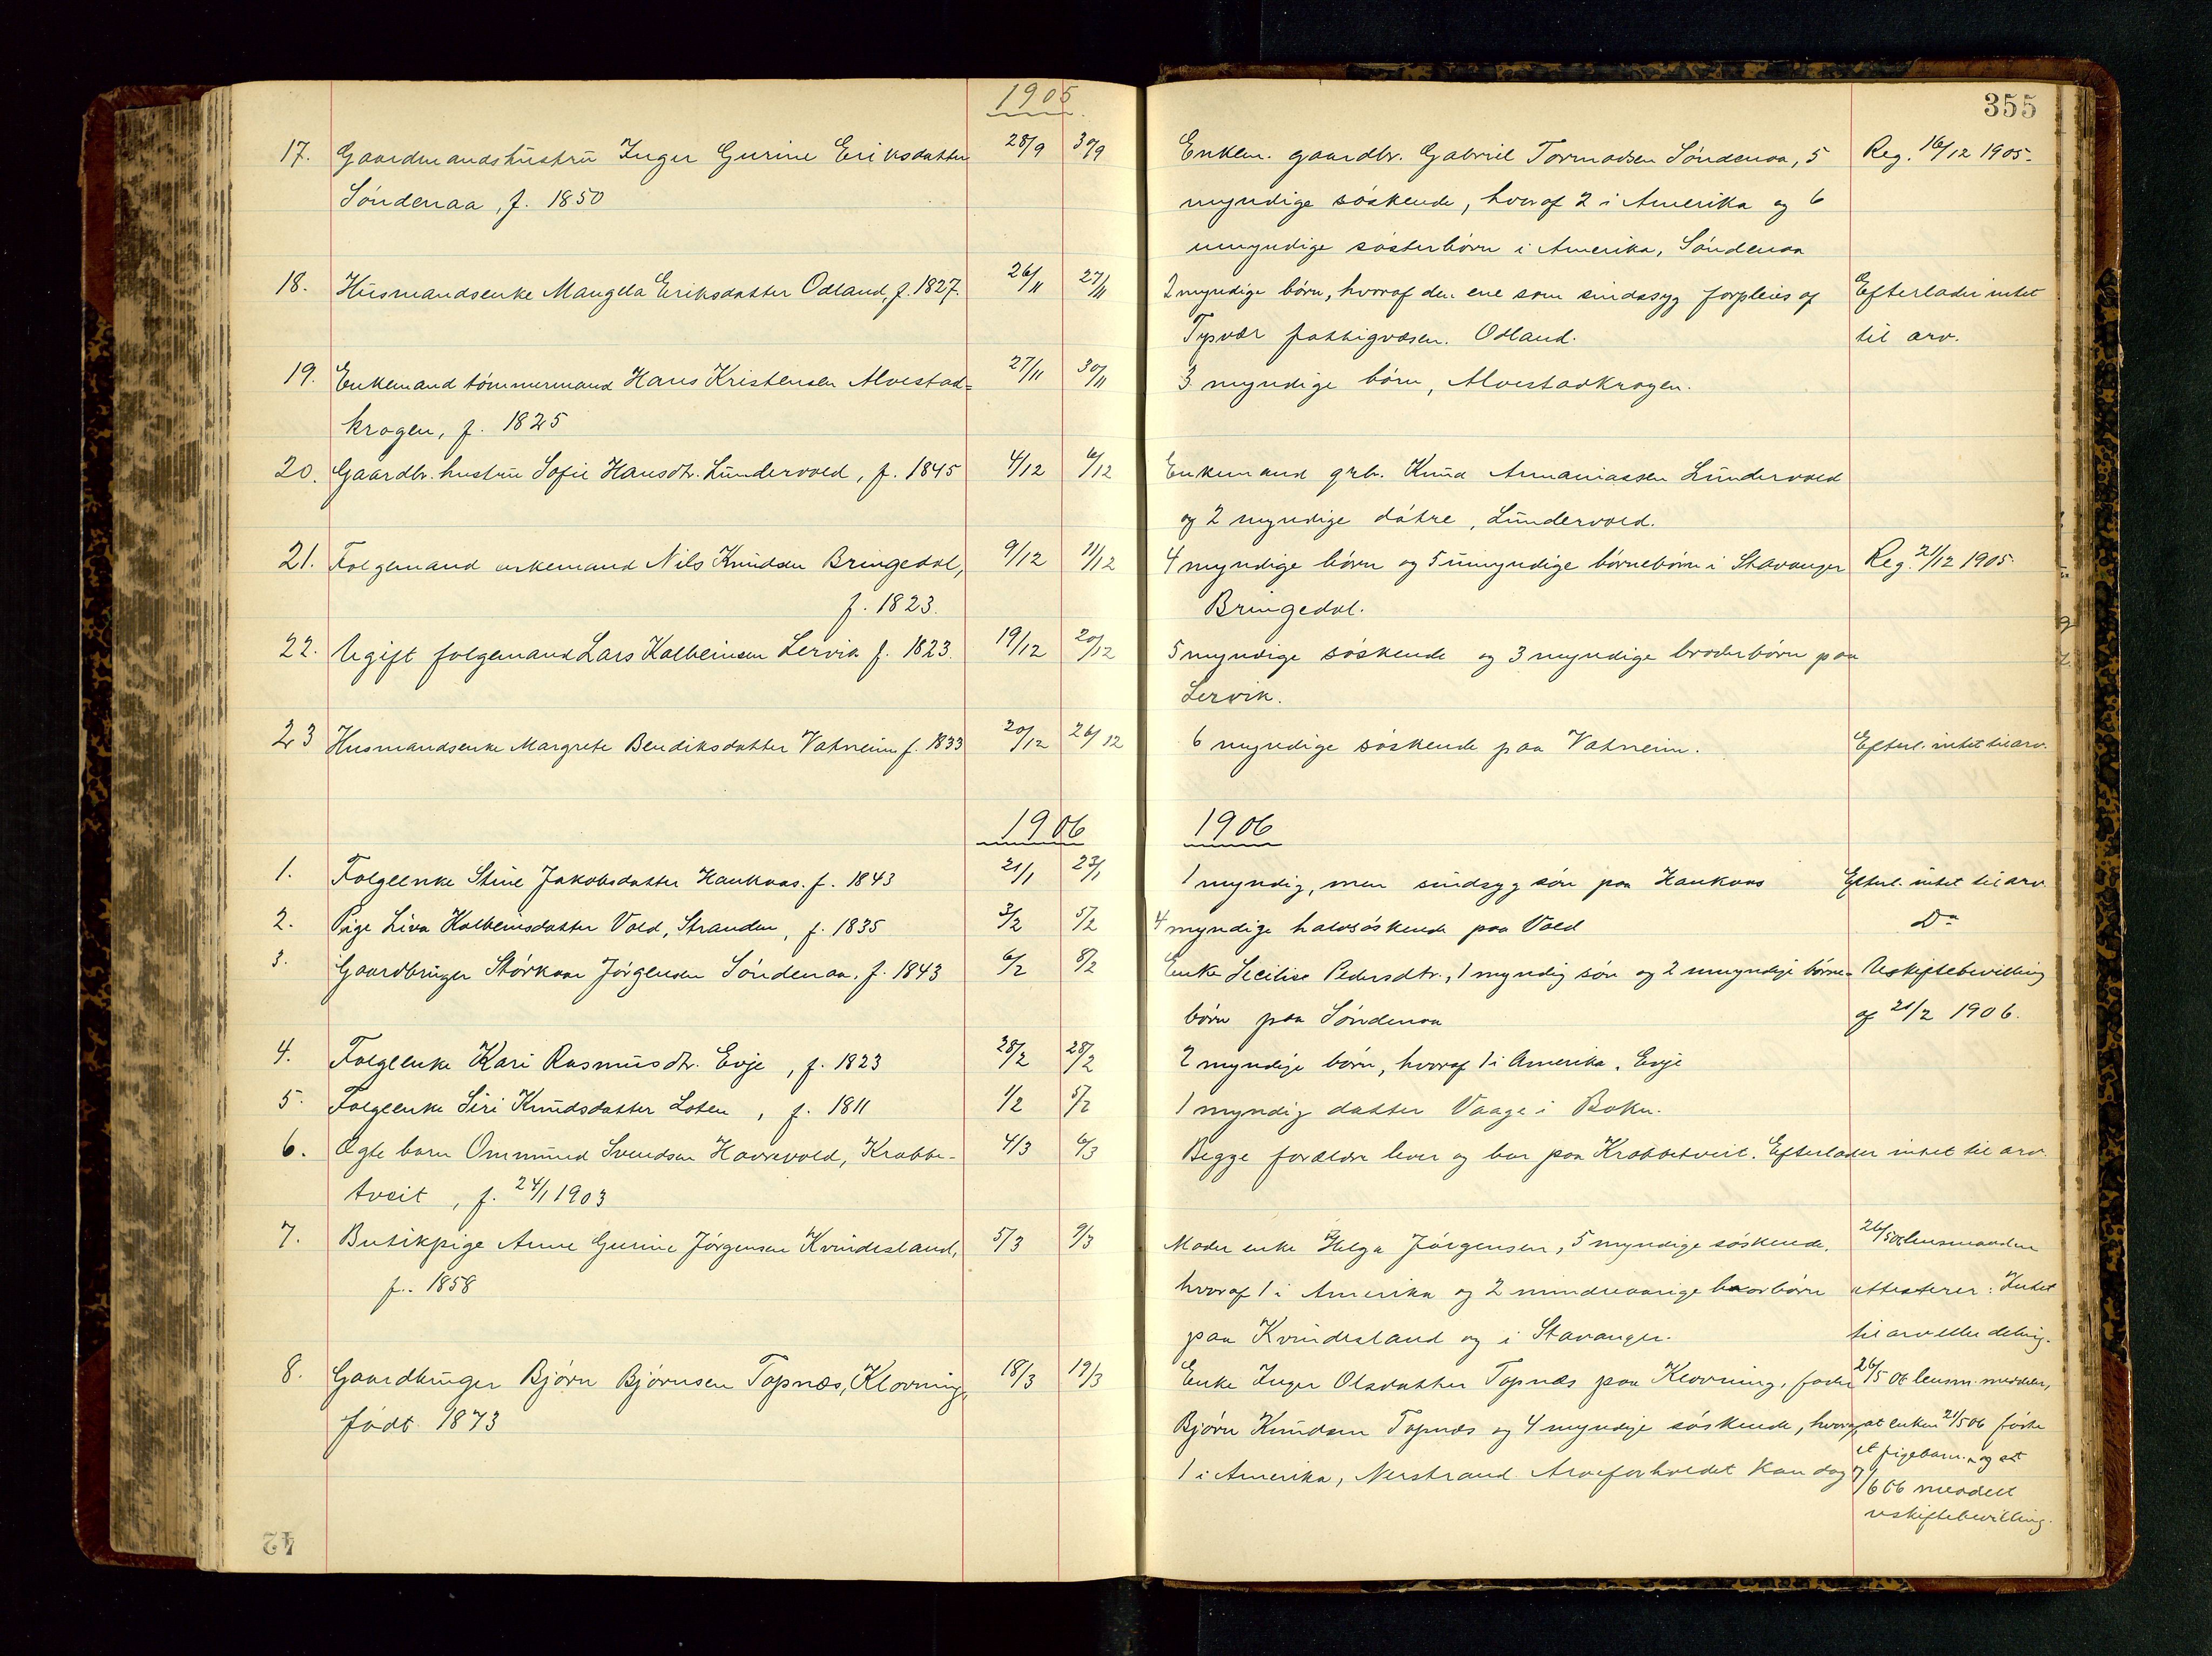 1905
355
17. Gaardmandshustru Inger Gurine Eriksdatter 28/9 30/9 Enkem. gaardbr. Gabriel Tormodsen Söndenaa, 5 Reg. 16/12 1905.
Söndenaa, f. 1850 myndige söskende, hvoraf 2 i Amerika og 6
umyndige sösterbörn i Amerika, Söndenaa
18. Husmandsenke Mangela Eriksdatter Odland, f. 1827. 26/11 27/11 2 myndige börn, hvoraf den ene som sindssyg forpleies af Efterlader intet
Tysvær fattigvæsen. Odland. til arv.
19. Enkemand tömmermand Hans Kristensen Alvestad- 27/11 30/11 3 myndige börn, Alvestadkrogen.
krogen, f. 1825
20. Gaardbr. hustru Sofie Hansdtr. Lundervold, f. 1845 4/12 6/12 Enkemand grbr. Knud Annaniassen Lundervold
og 2 myndige dötre, Lundervold.
21. Folgemand enkemand Nils Knudsen Bringedal, 9/12 11/12 4 myndige börn og 5 umyndige börnebörn i Stavanger Reg. 21/12 1905.
f. 1823. Bringedal.
22. Ugift folgemand Lars Kolbeinsen Lervik f. 1823. 19/12 20/12 5 myndige söskende og 3 myndige broderbörn paa
Lervik.
23 Husmandsenke Margrete Bendiksdatter Vatneim f. 1833 20/12 26/12 6 myndige söskende paa Vatneim. Efterl. intet til arv.
1906 1906
1. Folgeenke Stine Jakobsdatter Haukaas. f. 1843 21/1 23/1 1 myndig, men sindsyg sön paa Haukaas Efterl. intet til arv.
2. Pige Liva Kolbeinsdatter Vold, Stranden, f. 1835 3/2 5/2 4 myndige halvsöskende paa Vold Do
3. Gaardbruger Störkaar Jörgensen Söndenaa. f. 1843 6/2 8/2 Enke Secilie Pedersdtr., 1 myndig sön og 2 umyndige börne- Uskiftebevilling
börn paa Söndenaa af 21/2 1906.
4. Folgeenke Kari Rasmusdtr. Evje, f. 1823 28/2 28/2 2 myndige börn, hvoraf 1 i Amerika. Evje
5. Folgeenke Siri Knudsdatter Loten, f. 1811 1/2 5/2 1 myndig datter Vaage i Bokn.
6. Ægte barn Ommund Svendsen Havrevold, Krabbe- 4/3 6/3 Begge forældre lever og bor paa Krabbetveit. Efterlader intet til arv.
tveit, f. 24/1 1903
7. Butikpige Anne Gurine Jörgensen Kvindesland, 5/3 9/3 Moder enke Helga Jörgensen, 5 myndige söskende, 26/5 06 lensmanden
f. 1858 hvoraf 1 i Amerika og 2 mindreaarige brorbörn attesterer: Intet
paa Kvindesland og i Stavanger. til arv eller deling.
8. Gaardbruger Björn Björnsen Topnæs, Klovning, 18/3 19/3 Enke Inger Olsdatter Topnæs paa Klovning, fader 26/5 06 lensm. meddeler,
födt 1873 Björn Knudsen Topnæs og 4 myndige söskende, hvoraf at enken 21/5 06 födte
1 i Amerika, Nerstrand. Arveforholdet kan dog et pigebarn. og at
7/6 06 meddelt
uskiftebevilling.
42